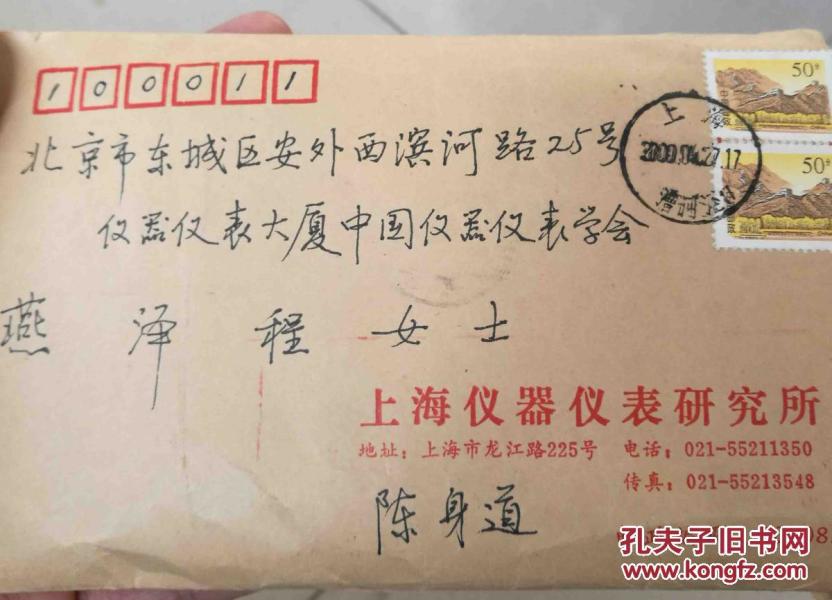 100011
50分
50分
上海
2000.04.27.17
北京市东城区安外西滨河路25号
仪器仪表大厦中国仪器仪表学会
燕泽程女士
上海仪器仪表研究所
地址：上海市龙江路225号 电话：021-55211350
传真：021-55213548
陈身道
孔夫子旧书网
www.kongfz.com